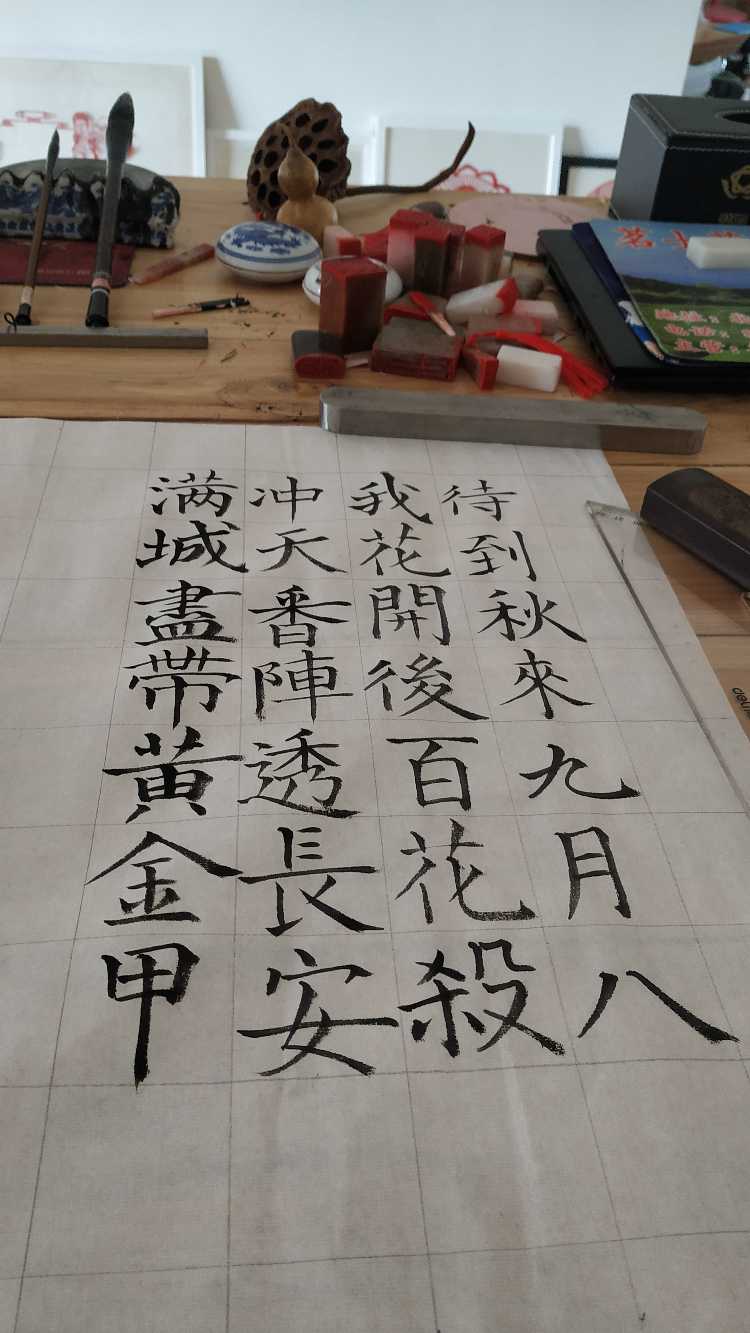 待到秋來九月八
我花開後百花殺
冲天香陣透長安
满城盡帶黃金甲